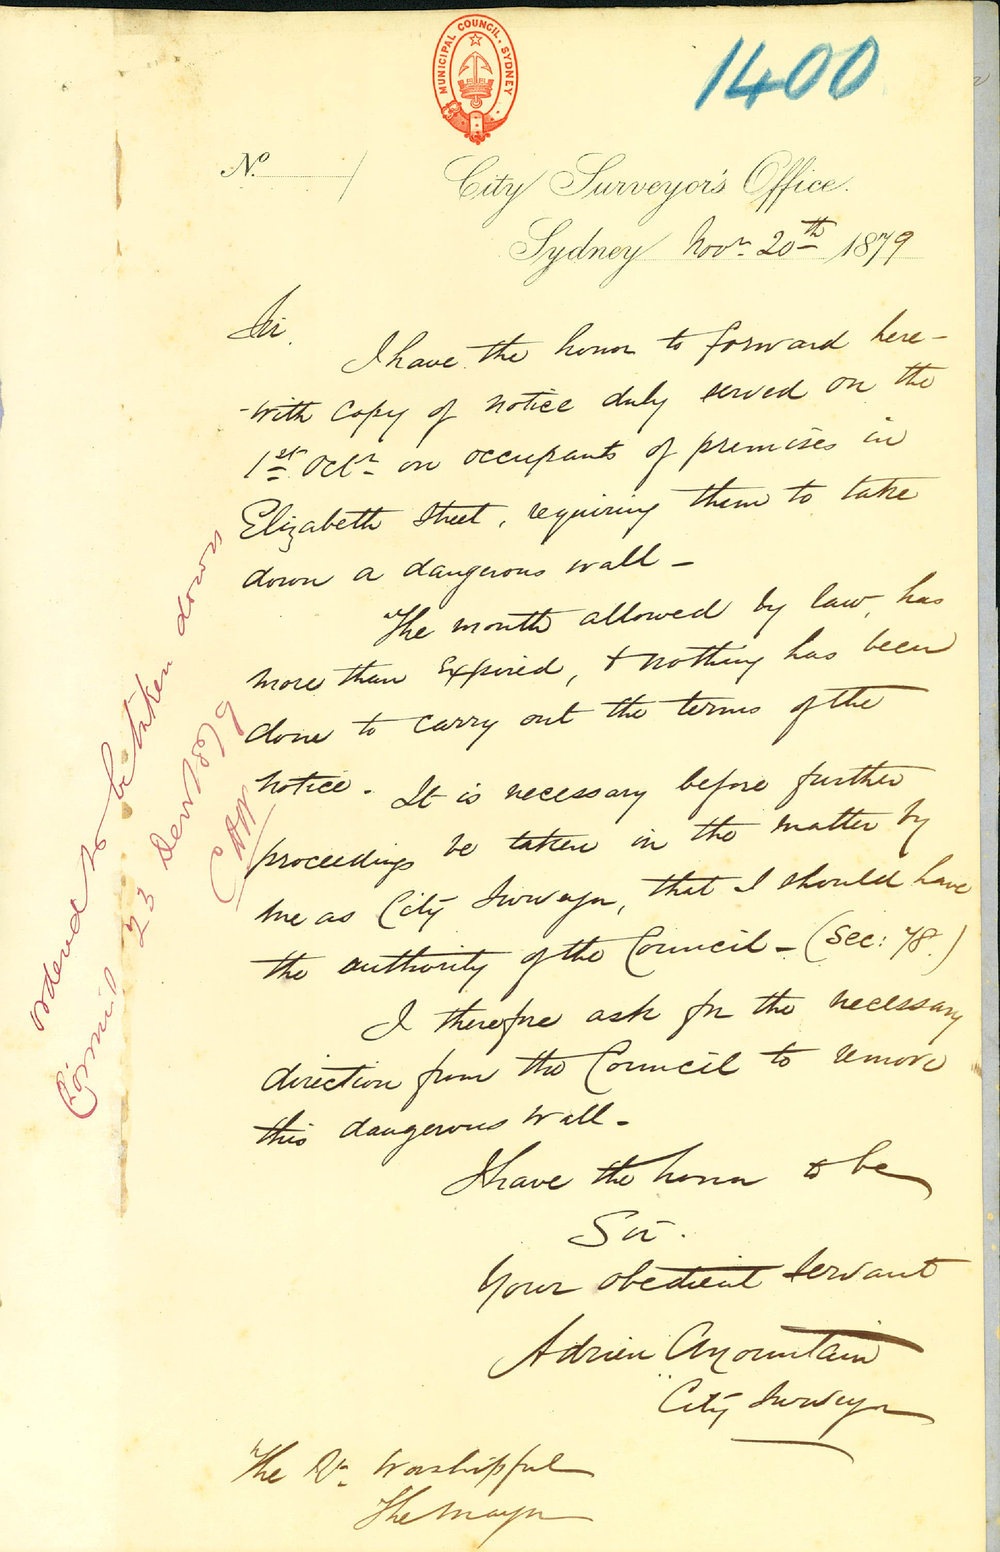 MUNICIPAL COUNCIL. SYDNEY
1400
No. /
City Surveyor's Office.
Sydney Novr. 20th 1879
Sir.
I have the honor to forward here-
-with copy of notice duly served on the
1st Octr. on occupants of premises in
Elizabeth Street, requiring them to take
down a dangerous wall -
The month allowed by law, has
more than expired, & nothing has been
done to carry out the terms of the
notice. It is necessary before further
proceedings be taken in the matter by
me as City Surveyor, that I should have
the authority of the Council - (Sec: 78.)
I therefore ask for the necessary
direction from the Council to remove
this dangerous wall -
I have the honor to be
Sir.
Your obedient Servant
Adrien C Mountain
City Surveyor
The Rt. Worshipful
The Mayor
ordered to be taken down
Council 23 Decr 1879
CHW